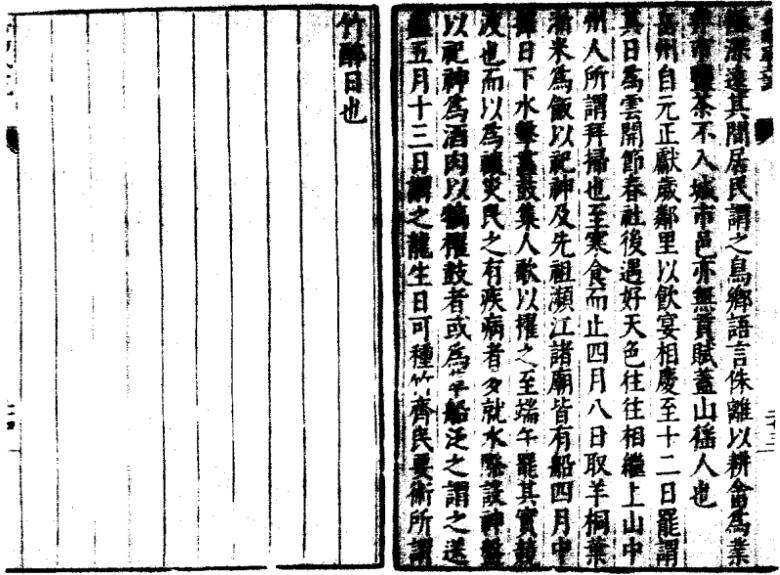 極深遠其間居民謂之鳥鄉語言侏離以耕畬為業
茶不入城市邑亦無貢賦蓋山徭人也
岳州自元正獻歲鄰里以飲宴相慶至十二日罷謂
其日為雲開節春社後遇好天色往往相繼上山中
州人所謂拜掃也至寒食而止四月八日取羊桐葉
淅米為飯以祀神及先祖瀕江諸廟皆有船四月中
擇日下水擊畫鼓集人歌以櫂之至端午罷其實競
渡也而以為禳災民之有疾病者多就水際設神盤
以祀神為酒肉以犒櫂鼓者或為草船泛之謂之送
五月十三日謂之龍生日可種竹齊民要術所謂
竹醉日也